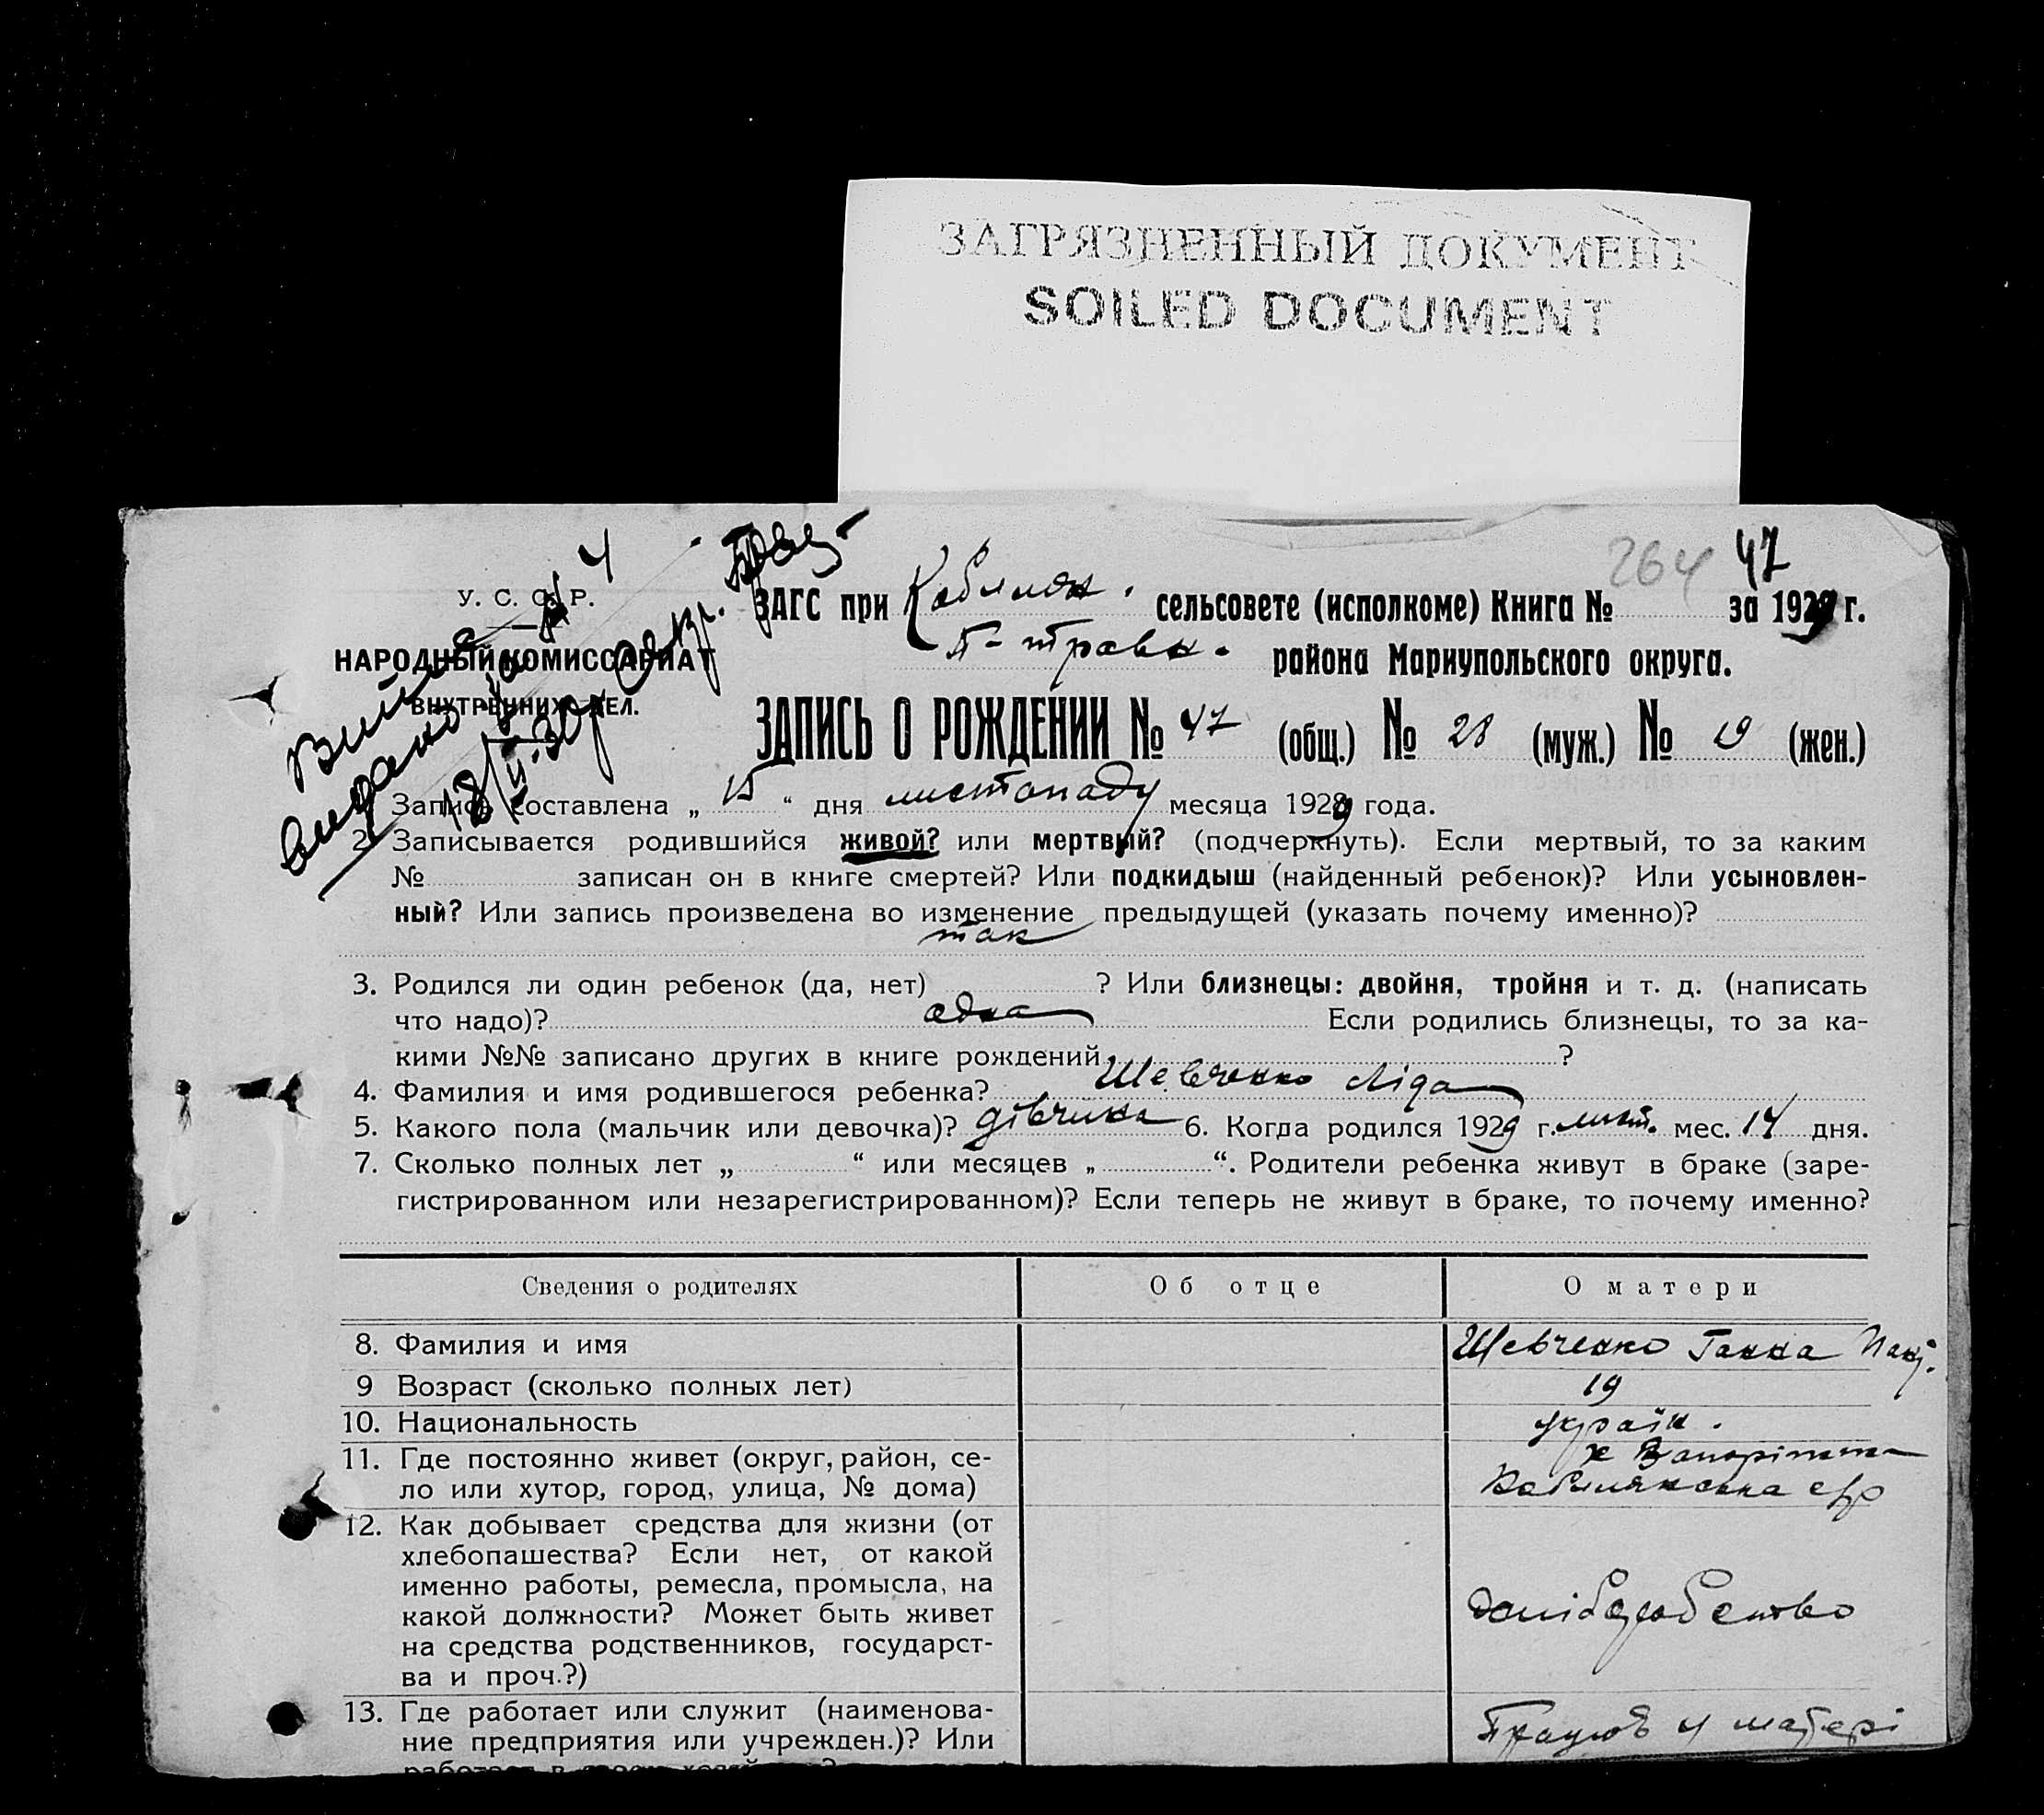 ЗАГРЯЗНЕННЫЙ ДОКУМЕНТ
SOILED DOCUMENT
264 47
У. С. С. Р.
НАРОДНЫЙ КОМИССАРИАТ
ВНУТРЕННИХ ДЕЛ.
видано
18/II-30р
ЗАГС при Кобиляк. сельсовете (исполкоме) Книга № за 1929 г.
района Мариупольского округа.
ЗАПИСЬ О РОЖДЕНИИ № 47 (общ.) № 28 (муж.) № 19 (жен.)
Запись составлена „ 15 “ дня листопаду месяца 1929 года.
2. Записывается родившийся живой? или мертвый? (подчеркнуть). Если мертвый, то за каким
№ записан он в книге смертей? Или подкидыш (найденный ребенок)? Или усыновлен-
ный? Или запись произведена во изменение предыдущей (указать почему именно)?
так
3. Родился ли один ребенок (да, нет) ? Или близнецы: двойня, тройня и т. д. (написать
что надо)? одна Если родились близнецы, то за ка-
кими №№ записано других в книге рождений ?
4. Фамилия и имя родившегося ребенка? Шевченко Ліда
5. Какого пола (мальчик или девочка)? дівчина 6. Когда родился 1929 г. лист. мес. 14 дня.
7. Сколько полных лет „ “ или месяцев „ “. Родители ребенка живут в браке (заре-
гистрированном или незарегистрированном)? Если теперь не живут в браке, то почему именно?
Сведения о родителях Об отце О матери
8. Фамилия и имя Шевченко Ганна
9 Возраст (сколько полных лет) 19
10. Национальность україн.
11. Где постоянно живет (округ, район, се-
ло или хутор, город, улица, № дома)
х Запоріжжа
Кобиляканська с/р
12. Как добывает средства для жизни (от
хлебопашества? Если нет, от какой
именно работы, ремесла, промысла, на
какой должности? Может быть живет
на средства родственников, государст-
ва и проч.?)
13. Где работает или служит (наименова-
ние предприятия или учрежден.)? Или
працює у матері